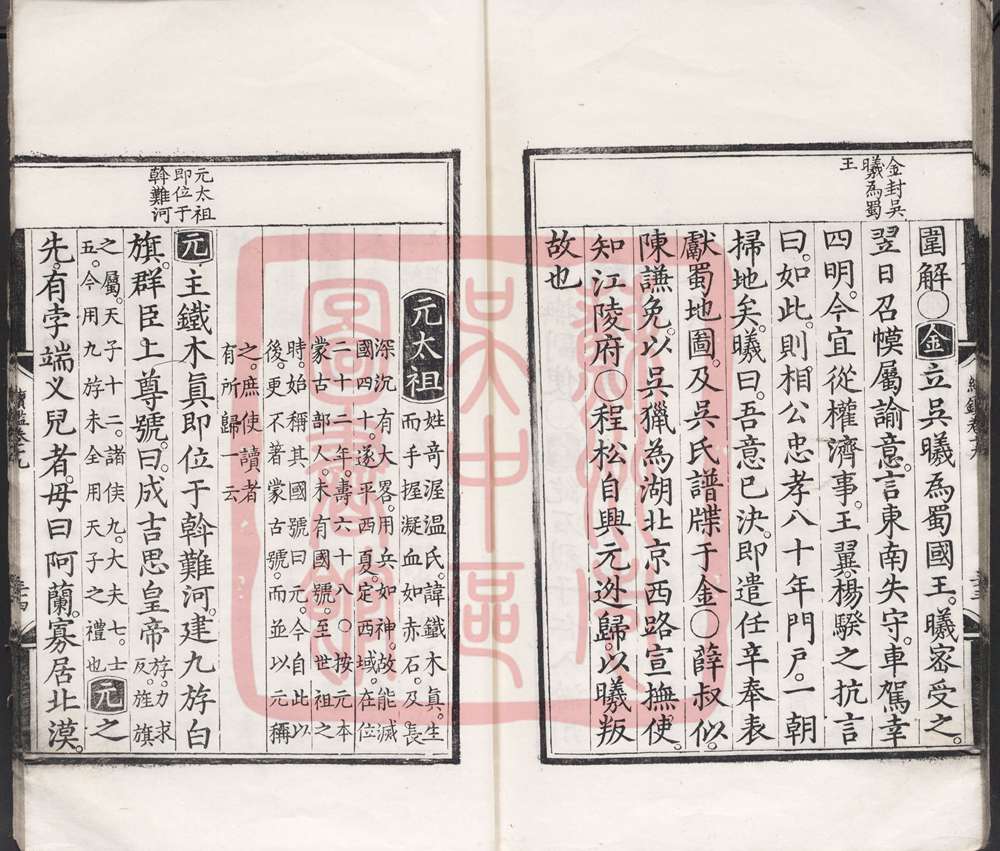 金封吳
曦為蜀
王
圍解〇金立吳曦為蜀國王。曦密受之。
翌日召幙屬諭意。言東南失守。車駕幸
四明。今宜從權濟事。王翼。楊騤之抗言
曰。如此。則相公忠孝八十年門戶。一朝
掃地矣。曦曰。吾意已決。即遣任辛奉表
獻蜀地圖。及吳氏譜牒于金〇薛叔似。
陳謙免。以吳獵為湖北京西路宣撫使。
知江陵府〇程松自興元迯歸。以曦叛
故也
元太祖
即位于
斡難河
元太祖
姓竒渥温氏。諱鐵木真。生
而手握凝血如赤石。及長
深沉有大畧。用兵如神。故能滅
國四十。遂平西夏。定西域。在位
二十二年。壽六十八〇按。元本
蒙古部人。未有國號。至世祖之
時。始稱其國號曰元。今自此以
後。更不著蒙古號。而並以元稱
之。庶使讀者
有所歸一云
元主鐵木真即位于斡難河。建九斿白
旗。群臣上尊號。曰。成吉思皇帝斿。力求
反。旌旗
之屬。天子十二。諸侯九。大夫七。士
五。今用九斿未全用天子之禮也元之
先有孛端义兒者。母曰阿蘭。寡居北漠。
吳中區
圖書館